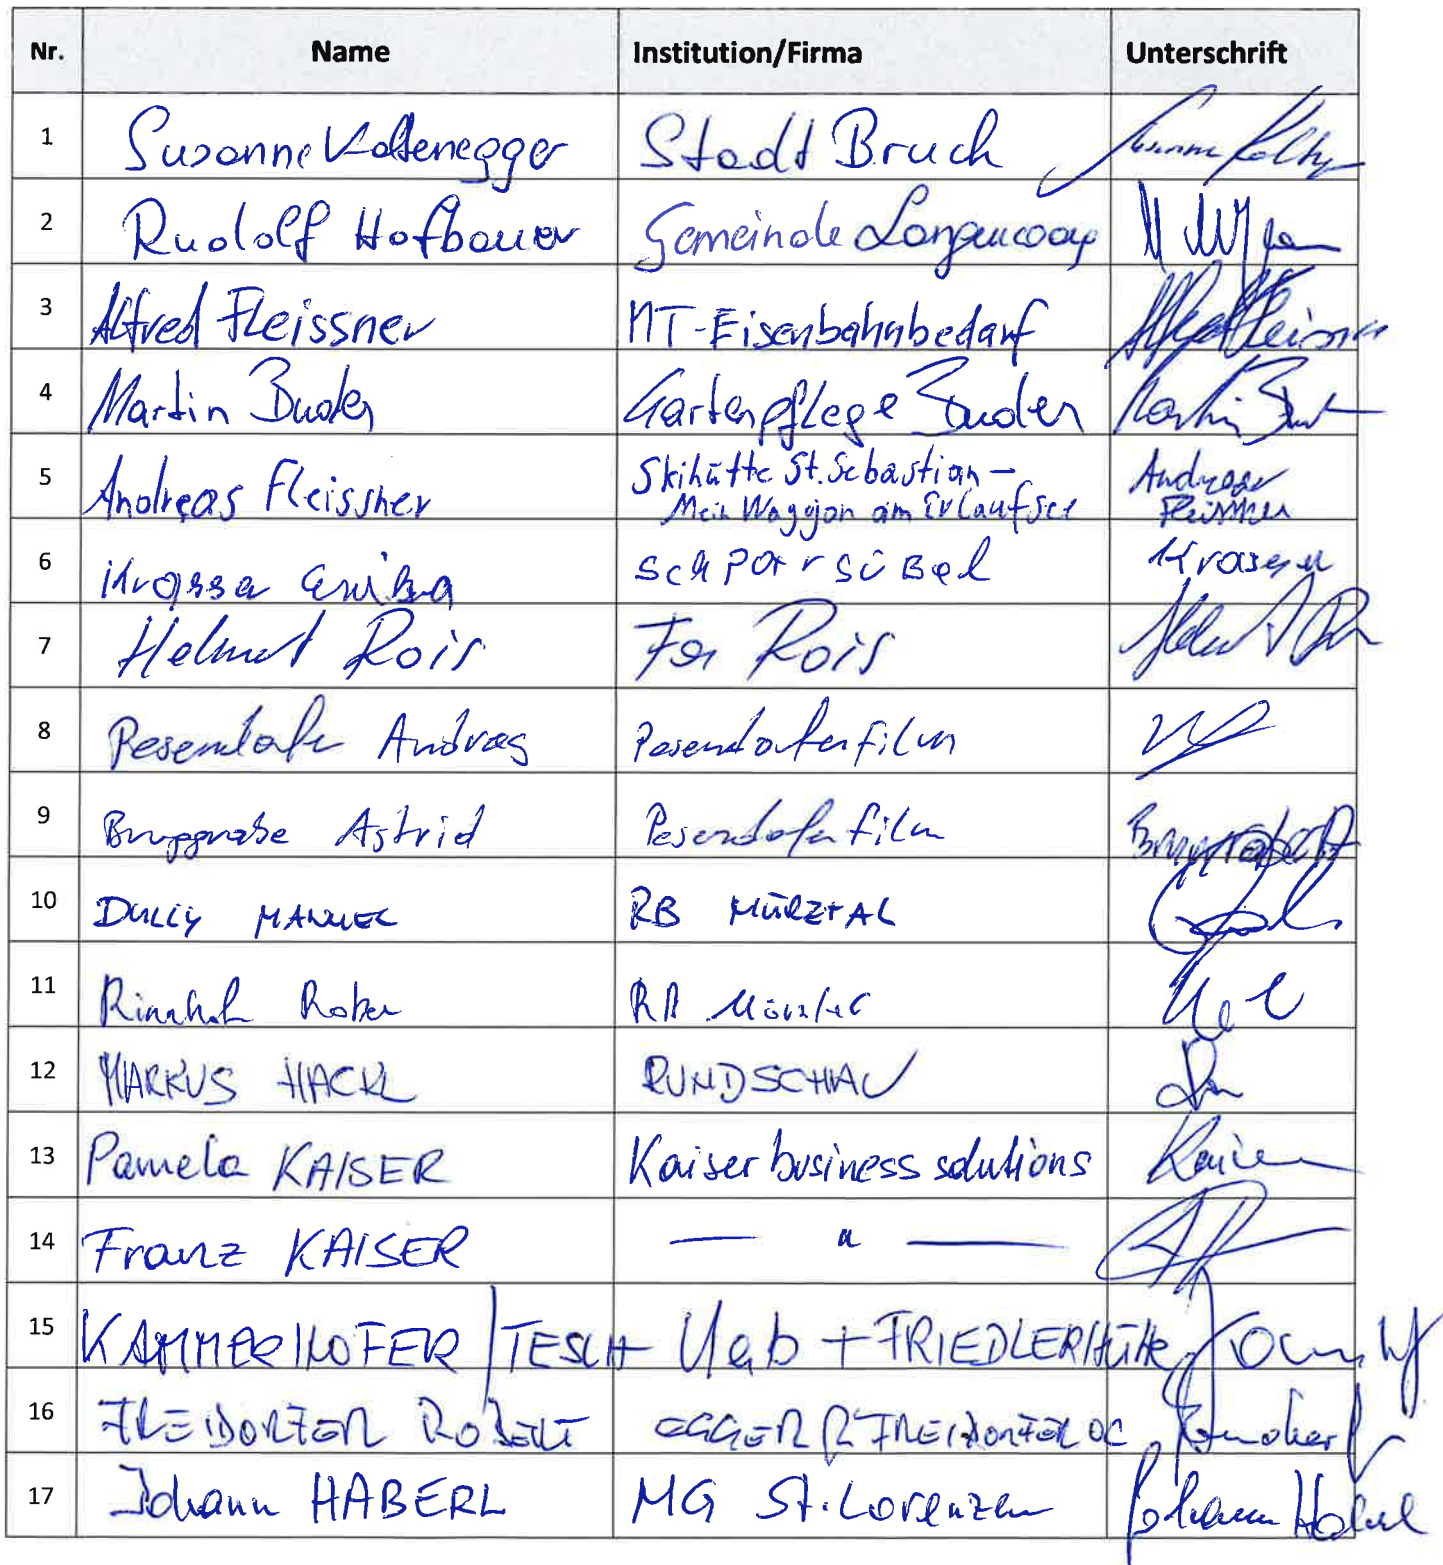 Nr. Name Institution/Firma Unterschrift
1 Susanne Kaltenegger Stadt Bruck
2 Rudolf Hofbauer Gemeinde Langenwang
3 Alfred Fleissner MT-Eisenbahnbedarf Alfred Fleissner
4 Martin Buder Gartenpflege Buder Martin
5 Andreas Fleissner Skihütte St. Sebastian – Andreas
Mein Waggon am Erlaufsee Fleissner
6 Krassa
7 Helmut Rois Fa Rois
8 Pesendorfer Andreas Pesendorferfilm
9 Astrid Pesendorfer film
10 DULLY MANUEL RB MÜRZTAL
11 RB Mürztal
12 MARKUS HACKL RUNDSCHAU
13 Pamela KAISER Kaiser business solutions Kaiser
14 Franz KAISER — " —
15 KAMMERHOFER / TESCH + FRIEDLERHütte
16 FREIDORFER ROBERT EGGER & FREIDORFER OG
17 Johann HABERL MG St. Lorenzen Johann Haberl